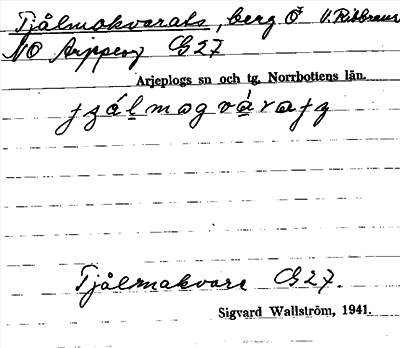 Tjålmakvarats, berg Ö V. Ribbraur
NO Arjeplog G27
Arjeplogs sn och tg, Norrbottens län.
Tjålmakvare G27.
Sigvard Wallström, 1941.